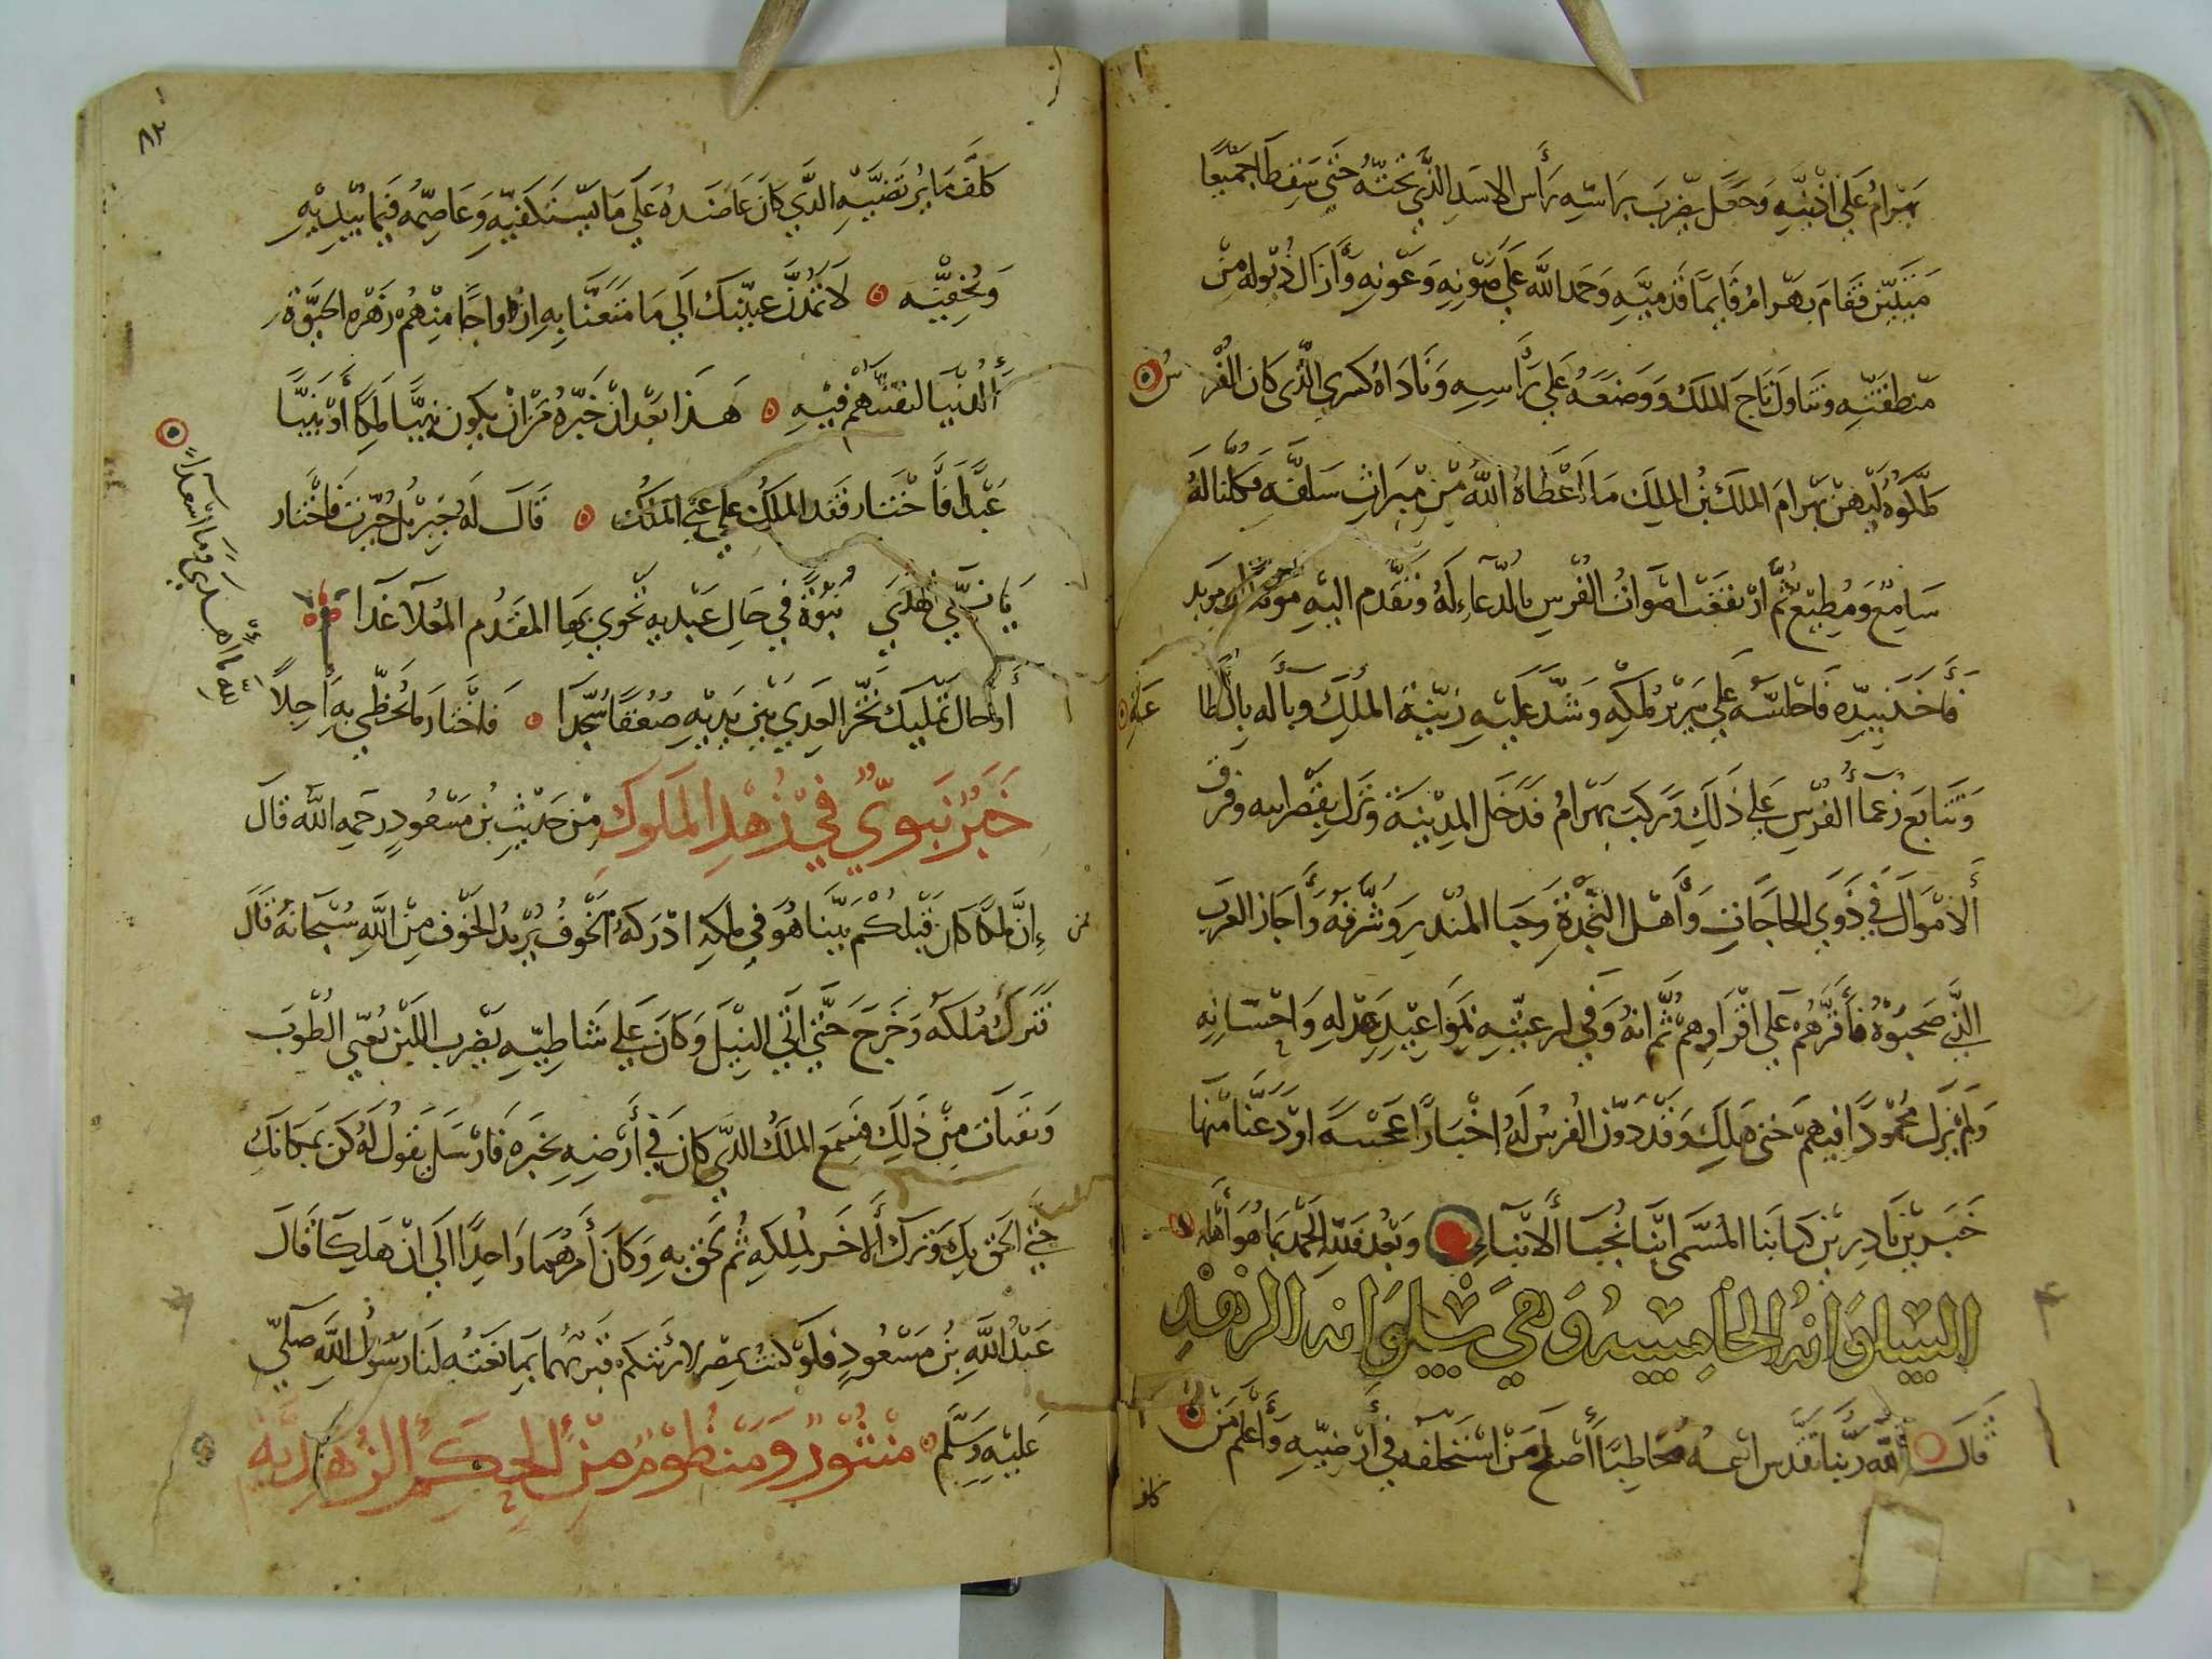 بهرام على اذنيه وجعل يضرب براسه رأس الاسد الذي تحته حتى سقطا جميعا
ميتين فقام بهرام قايما قدميه وحمد الله على صونه وعونه وأزال ذيوله من
منطقته وتناول تاج الملك ووضعه على رأسه وناداه كسرى الذي كان الفرس
ملكوه ليهن بهرام الملك بن الملك ما أعطاه الله من ميراث سلفه فكلنا له
سامع ومطيع ثم ارتفعت اصوات الفرس بالدعاء له وتقدم اليه موبذان موبذ
فأخذ بيده فاجلسه على سرير ملكه وشد عليه زينة الملك وبآ له بالطاعة
وتتابع زعمآ الفرس على ذلك وركب بهرام فدخل المدينة ونزل بقصرابيه وفرق
ألاموال في ذوي الحاجات وأهل النجدة وحبا المنذر وشرفه وأجاز العرب
الذي صحبوه فأقرهم على اقرارهم ثم انه وفى لرعيته بمواعيد عدله واحسانه
ولم يزل محمودا فيهم حتى هلك وقد دون الفرس له اخبارا عجيبه اودعنا منها
خبرين نادرين كتابنا المسمى انبا نجبآ ألابنآء وبعد فلله الحمد بما هو أهله
السلوانه الخامسه وهي سلوانه الزهد
قال الله ربنا تقدس اسمه مخاطبا أصلح من استخلفه في أرضيه وأعلم من
كلف
٨٣
كلف ما يرتضيه الذي كان عاضده على ما يستكفيه وعاصمه فيما يبديه
ويخفيه لا تمدن عينيك الى ما متعنا به ازواجا منهم زهرة الحيوة
ألدنيا لنفتنهم فيه هذا بعد ان خيره من ان يكون نبيا ملكا أو نبيا
عبدا فاختار فقد الملك على عز الملك قال له جبريل خيرت فاختار
يا نبي الهدى نبوة في حال عبديه تحوي بها المقدم المعلا غدا
أوحال تمليك تخر العدي بين يديه صعقا سجدا فاختار ما يحظى به آجلا
لله ما اهدى وما اسعدا
خبر نبوي في زهد الملوك من حديث بن مسعود رحمه الله قال
إن ملكا كان قبلكم بينا هو في ملكه ادركه الخوف يريد الخوف من الله سبحانه قال
فترك ملكه وخرج حتى اتي النيل وكان على شاطيه يضرب اللبن يعني الطوب
ويقتات من ذلك فسمع الملك الذي كان في أرضه بخبره فارسل يقول له كن بمكانك
حتى الحق بك وترك ألاخر لملكه ثم لحق به وكان أمرهما واحدا الى ان هلكا قال
عبد الله بن مسعود فلو كنت بمصر لاريتكم قبريهما بما نعته لنا رسول الله صلى
عليه وسلم منثور ومنظوم من الحكم الزهديه